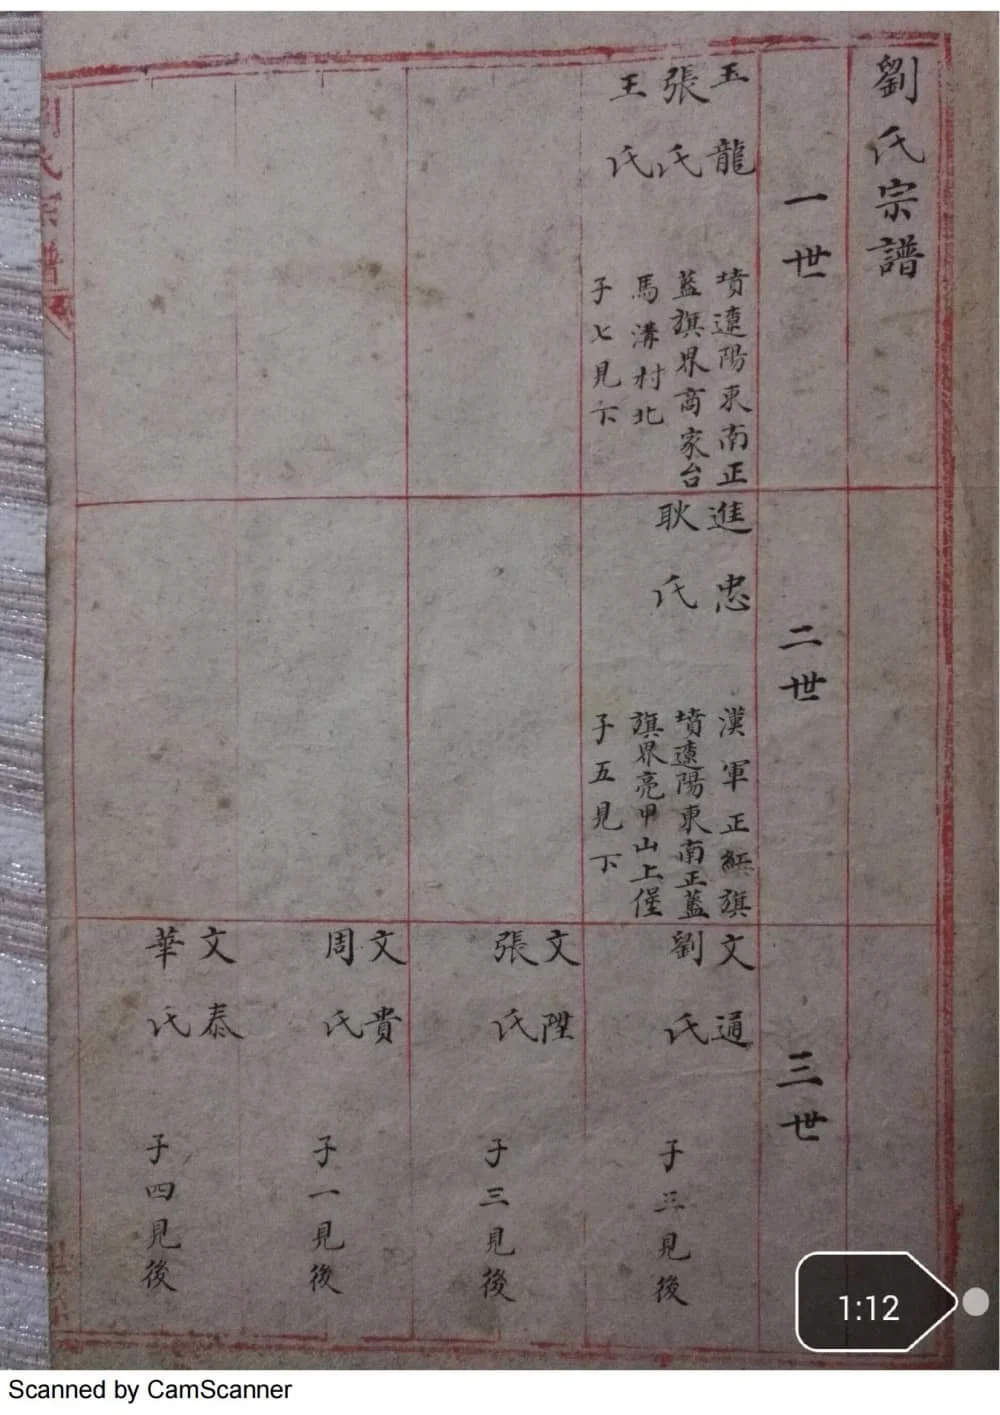 劉氏宗譜
一世
玉龍
張氏
王氏
墳遼陽東南正
藍旗界高家台
馬溝村北
子七見下
二世
進忠
耿氏
漢軍正紅旗
墳遼陽東南正藍
旗界亮甲山上堡
子五見下
三世
文通
劉氏
子三見後
文陞
張氏
子三見後
文貴
周氏
子一見後
文泰
華氏
子四見後
劉氏宗譜
1:12
Scanned by CamScanner